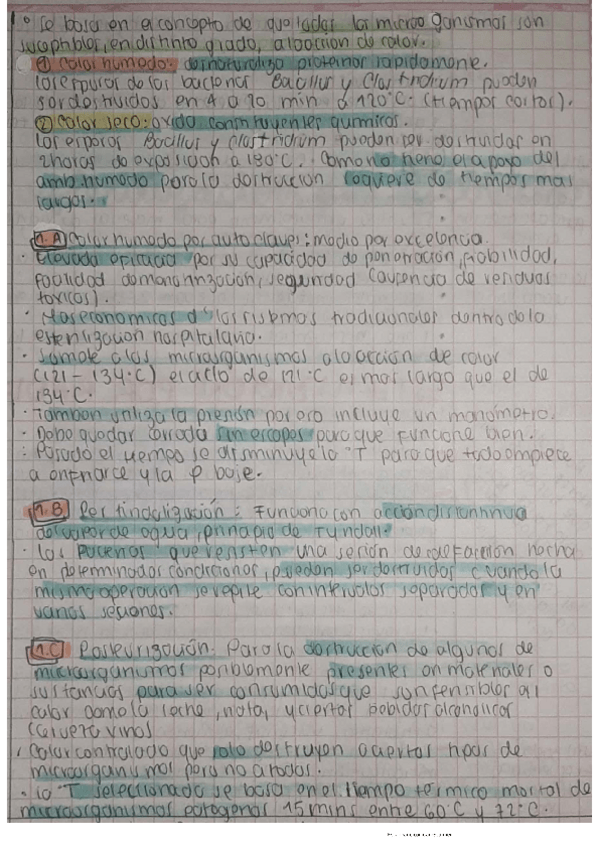 ° Se basa en el concepto de que todos los microorganismos son
suceptibles, en distinto grado, a la acción de calor.
① Calor humedo: desnaturaliza proteinas rapidamente.
Las esporas de las bacterias Bacillus y Clostridium pueden
ser destruidas en 4 a 20 min a 120°C. (tiempos cortos).
② Calor seco: oxida constituyentes quimicos.
Las esporas Bacillus y Clostridium pueden ser destruidas en
2 horas de exposición a 180°C. Como no tiene el apoyo del
amb. humedo para la destrucción requiere de tiempos mas
largos.
1.A Calor humedo por autoclaves: medio por excelencia.
· Elevada eficacia por su capacidad de penetración, fiabilidad,
facilidad de monitorización, seguridad (ausencia de residuos
toxicos).
· Mas economicos d los sistemas tradicionales dentro de la
esterilización hospitalaria.
· Somete a los microorganismos a la acción de calor
(121 - 134°C) el ciclo de 121°C es mas largo que el de
134°C.
· Tambien utiliza la presión por eso incluye un manómetro.
· Debe quedar cerrada sin escapes para que funcione bien.
· Pasado el tiempo se disminuye la °T para que todo empiece
a enfriarce y la P baje.
1.B Por tindalización: Funciona con acción discontinua
del vapor de agua, principio de Tyndall.
· Los que resisten una sesión de calefacción hecha
en determinadas condiciones, pueden ser destruidos cuando la
misma operación se repite con intervalos separados y en
varias sesiones.
1.C Pasteurización: Para la destrucción de algunos de
microorganismos posiblemente presentes en materiales o
sustancias para ser consumidas que son sensibles al
calor como la leche, nata, y ciertas bebidas alcoholicas
(cerveza vinos
· Calor controlado que solo destruyen a ciertos tipos de
microorganismos pero no a todos.
· la °T seleccionada se basa en el tiempo termico mortal de
microorganismos patogenos 15 mins entre 60°C y 72°C.